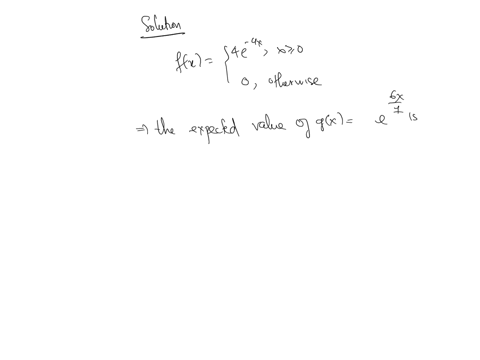 Solution
f(x) = { 4e^{-4x}, x ≥ 0
0, otherwise
⇒ the expected value of g(x) = e^{6x/7} is